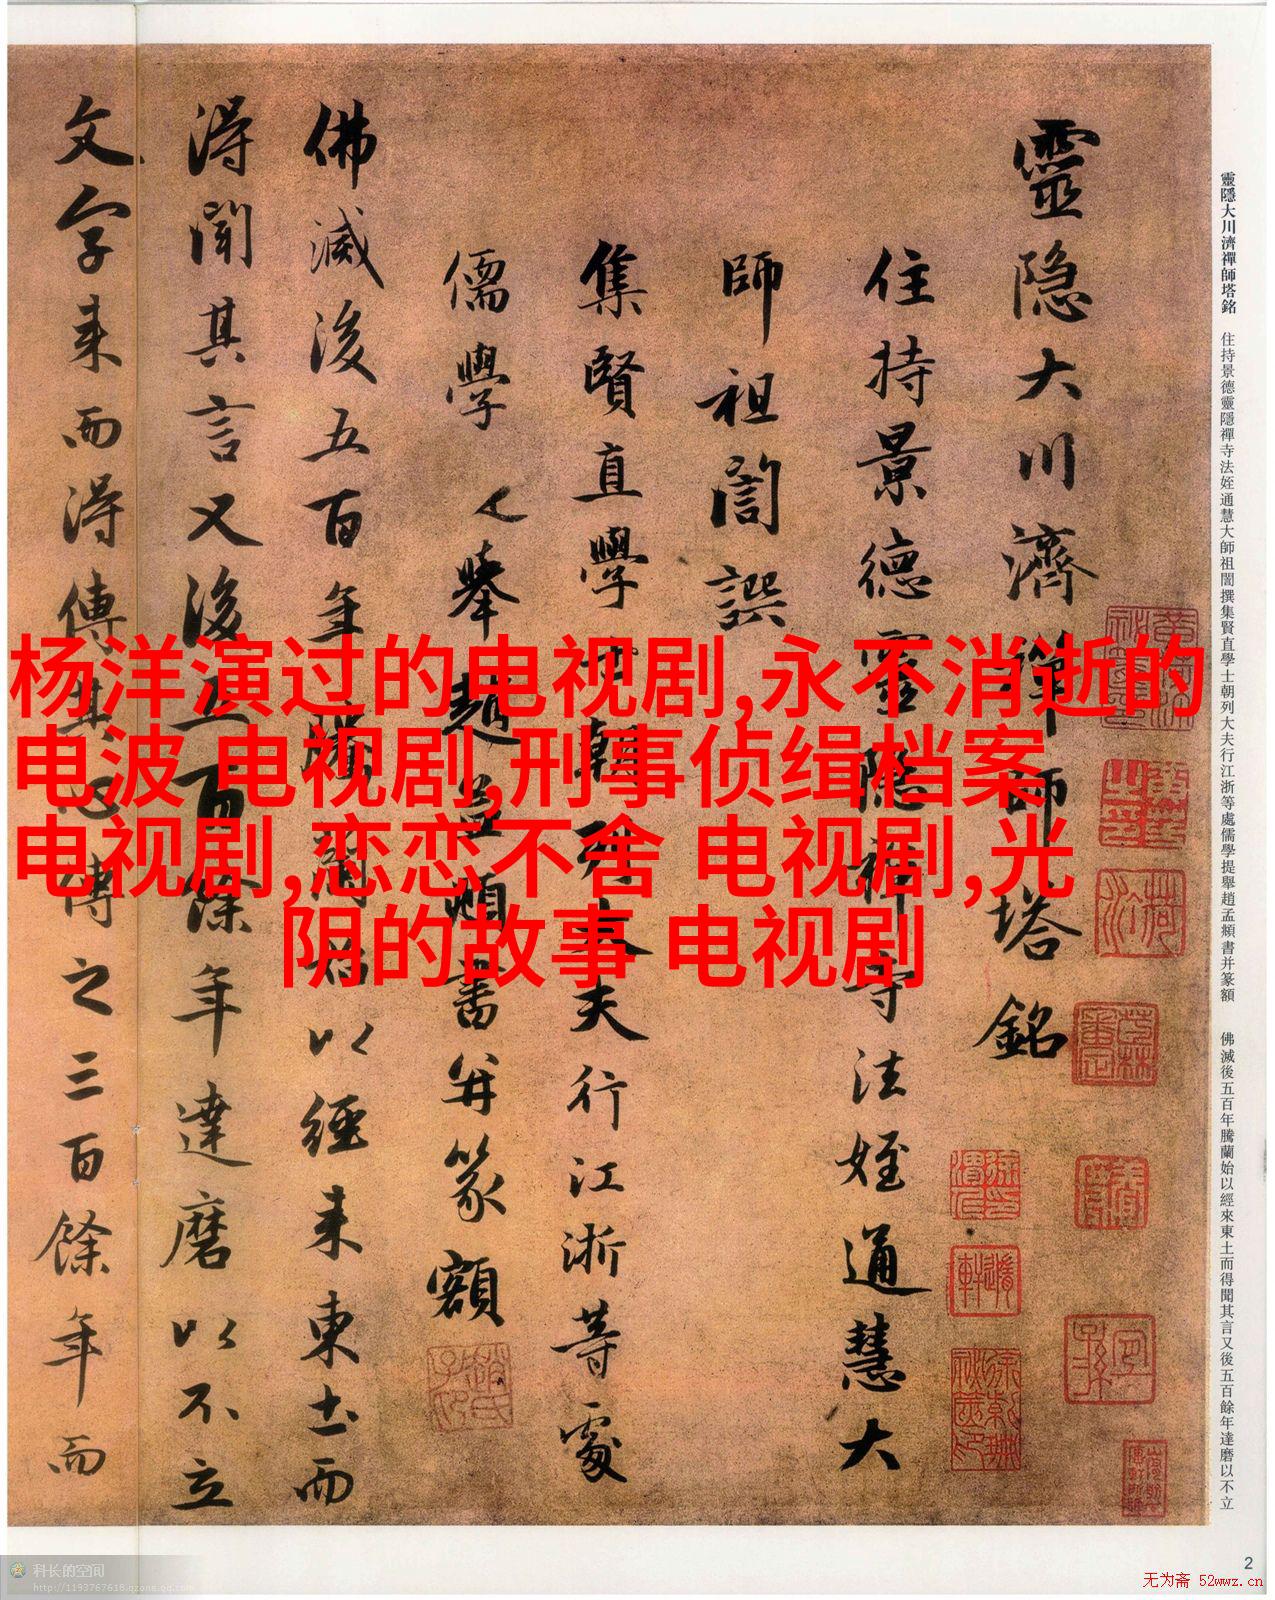 靈隱大川濟禪師塔銘
住持景德靈隱禪寺法姪通慧大
師祖誾譔
集賢直學士朝列大夫行江浙等處
儒學提舉趙孟頫書并篆額
佛滅後五百年騰蘭始以經來東土而
得聞其言又後五百餘年達磨以不立
文字来而得傳其心傳之三百餘年而
杨洋演过的电视剧,永不消逝的
电波 电视剧,刑事侦缉档案
电视剧,恋恋不舍 电视剧,光
阴的故事 电视剧
靈隱大川濟禪師塔銘 住持景德靈隱禪寺法姪通慧大師祖誾撰集賢直學士朝列大夫行江浙等處儒學提舉趙孟頫書并篆額 佛滅後五百年騰蘭始以經來東土而得聞其言又後五百餘年達磨以不立
2
科长的空间
http://1193767618.qzone.qq.com
无为斋 52wwz.cn